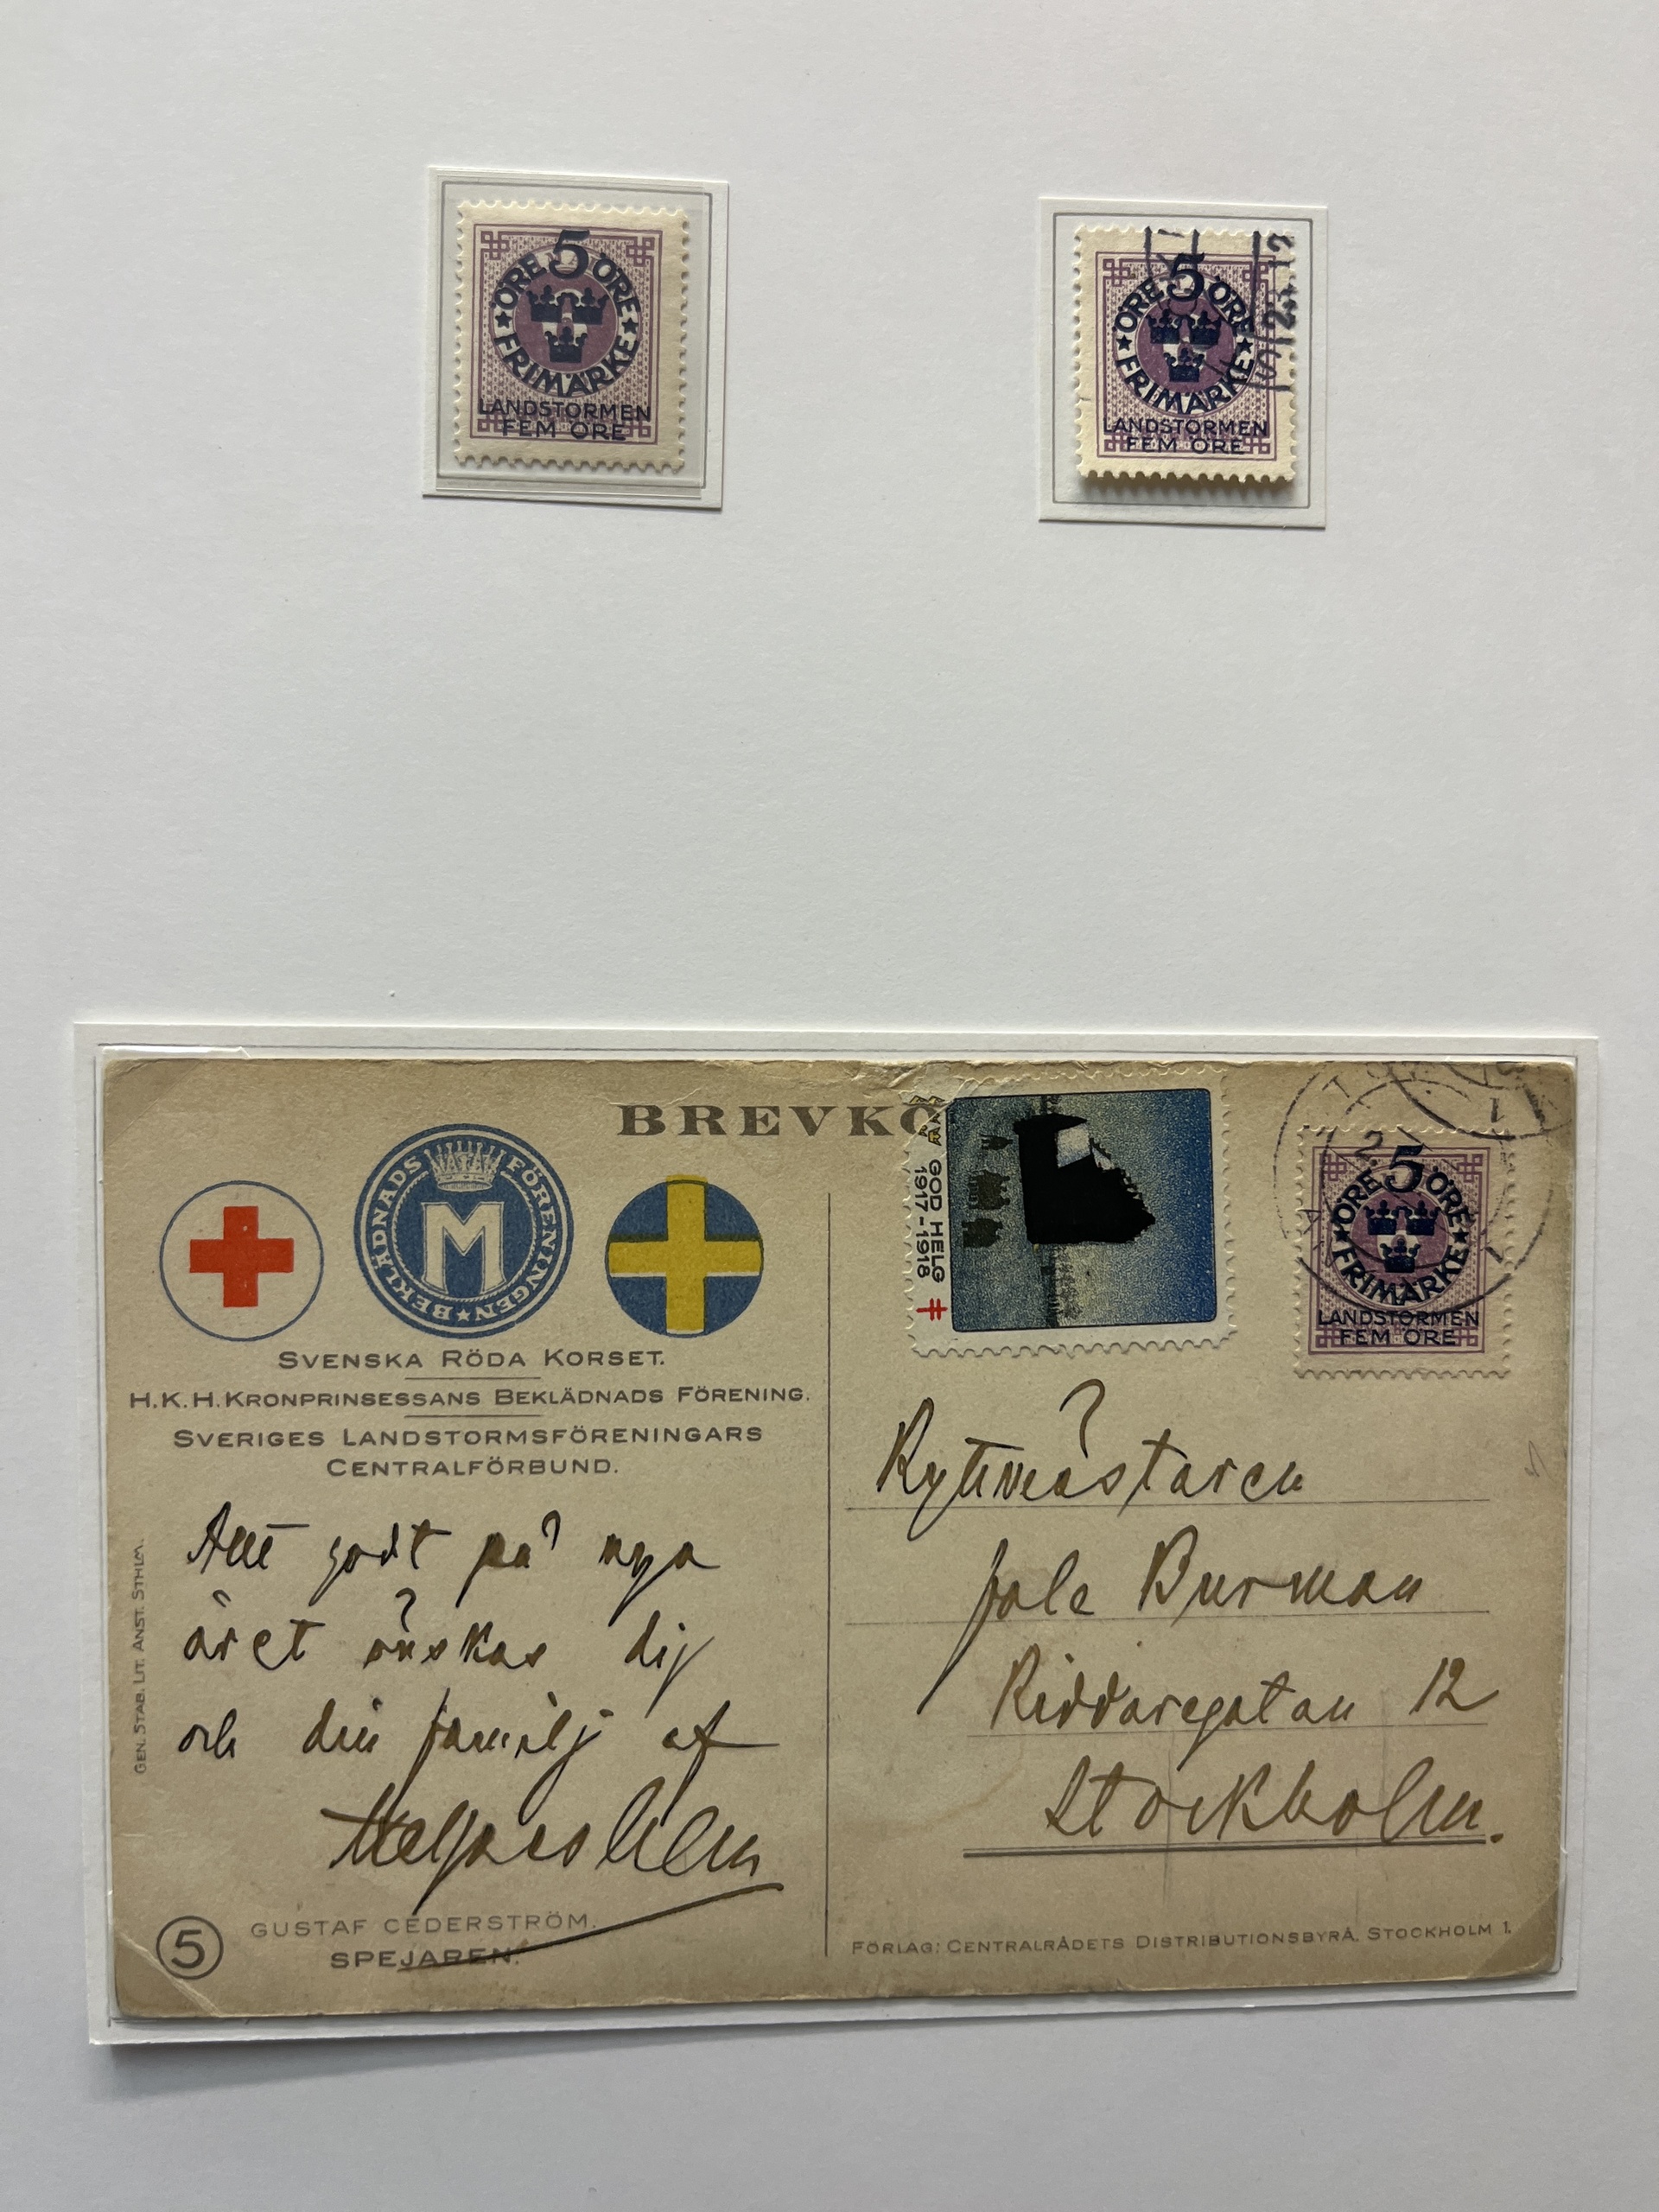 5
ÖRE ÖRE
FRIMÄRKE
LANDSTORMEN
FEM ÖRE
5
ÖRE ÖRE
FRIMÄRKE
LANDSTORMEN
FEM ÖRE
BREVKO
BEKLÄDNADS FÖRENINGEN
M
GOD HELG
1917-1918
5
ÖRE ÖRE
FRIMÄRKE
LANDSTORMEN
FEM ÖRE
SVENSKA RÖDA KORSET.
H.K.H. KRONPRINSESSANS BEKLÄDNADS FÖRENING.
SVERIGES LANDSTORMSFÖRENINGARS
CENTRALFÖRBUND.
Allt godt på nya
året önskas dig
och din familj af
GEN. STAB. LIT. ANST. STHLM.
5
GUSTAF CEDERSTRÖM.
SPEJAREN.
Ryttmästaren
Burman
Riddaregatan 12
Stockholm.
FÖRLAG: CENTRALRÅDETS DISTRIBUTIONSBYRÅ. STOCKHOLM 1.